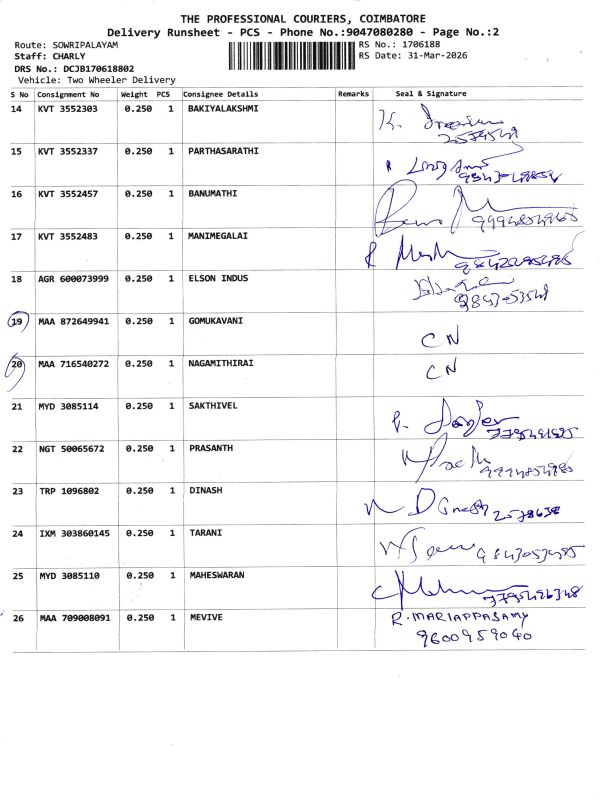 THE PROFESSIONAL COURIERS, COIMBATORE
Delivery Runsheet - PCS - Phone No.:9047080280 - Page No.:2
Route: SOWRIPALAYAM RS No.: 1706188
Staff: CHARLY RS Date: 31-Mar-2026
DRS No.: DCJB170618802
Vehicle: Two Wheeler Delivery
S No Consignment No Weight PCS Consignee Details Remarks Seal & Signature
14 KVT 3552303 0.250 1 BAKIYALAKSHMI
15 KVT 3552337 0.250 1 PARTHASARATHI
16 KVT 3552457 0.250 1 BANUMATHI
17 KVT 3552483 0.250 1 MANIMEGALAI
18 AGR 600073999 0.250 1 ELSON INDUS
19 MAA 872649941 0.250 1 GOMUKAVANI CN
20 MAA 716540272 0.250 1 NAGAMITHIRAI CN
21 MYD 3085114 0.250 1 SAKTHIVEL
22 NGT 50065672 0.250 1 PRASANTH
23 TRP 1096802 0.250 1 DINASH
24 IXM 303860145 0.250 1 TARANI
25 MYD 3085110 0.250 1 MAHESWARAN
26 MAA 709008091 0.250 1 MEVIVE R. MARIAPPASAMY
9600959040